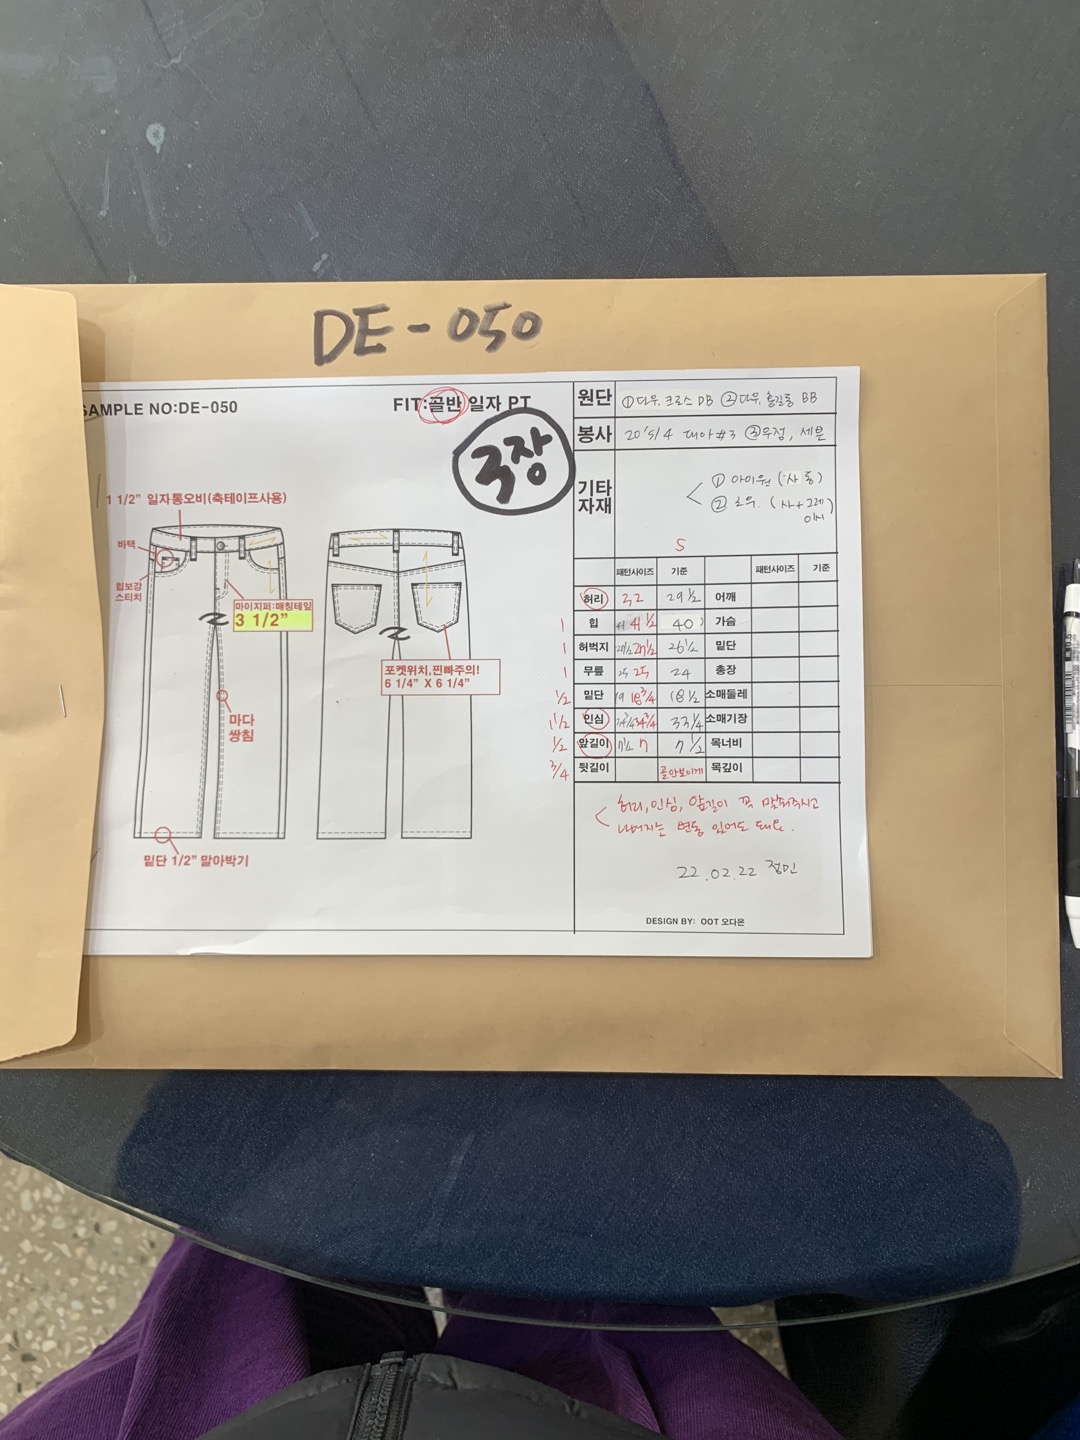 DE-050
SAMPLE NO:DE-050
FIT:골반 일자 PT
국장
1 1/2" 일자통오비(축테이프사용)
바택
힙보강
스티치
마이지퍼:매칭테잎
3 1/2"
포켓위치,찐빠주의!
6 1/4" X 6 1/4"
마다
쌍침
밑단 1/2" 말아박기
원단 ①다우.크로스 DB ②다우.홍길동 BB
봉사 20's/4 대아#3 ③우정, 세븐
기타
자재
① 아이원 (사동)
② 로우.
S
패턴사이즈 기준 패턴사이즈 기준
허리 32 29 1/2 어깨
1 힙 41 1/2 40 가슴
1 허벅지 27 1/2 26 1/2 밑단
1 무릎 25 25 24 총장
1/2 밑단 19 18 3/4 18 1/2 소매둘레
1 1/2 인심 34 3/4 33 1/4 소매기장
1/2 앞길이 7 1/2 7 7 1/2 목너비
3/4 뒷길이 골안보이게 목깊이
허리,인심, 앞길이 꼭 맞춰주시고
나머지는 변동 있어도 돼요.
22.02.22 정민
DESIGN BY: OOT 오다은